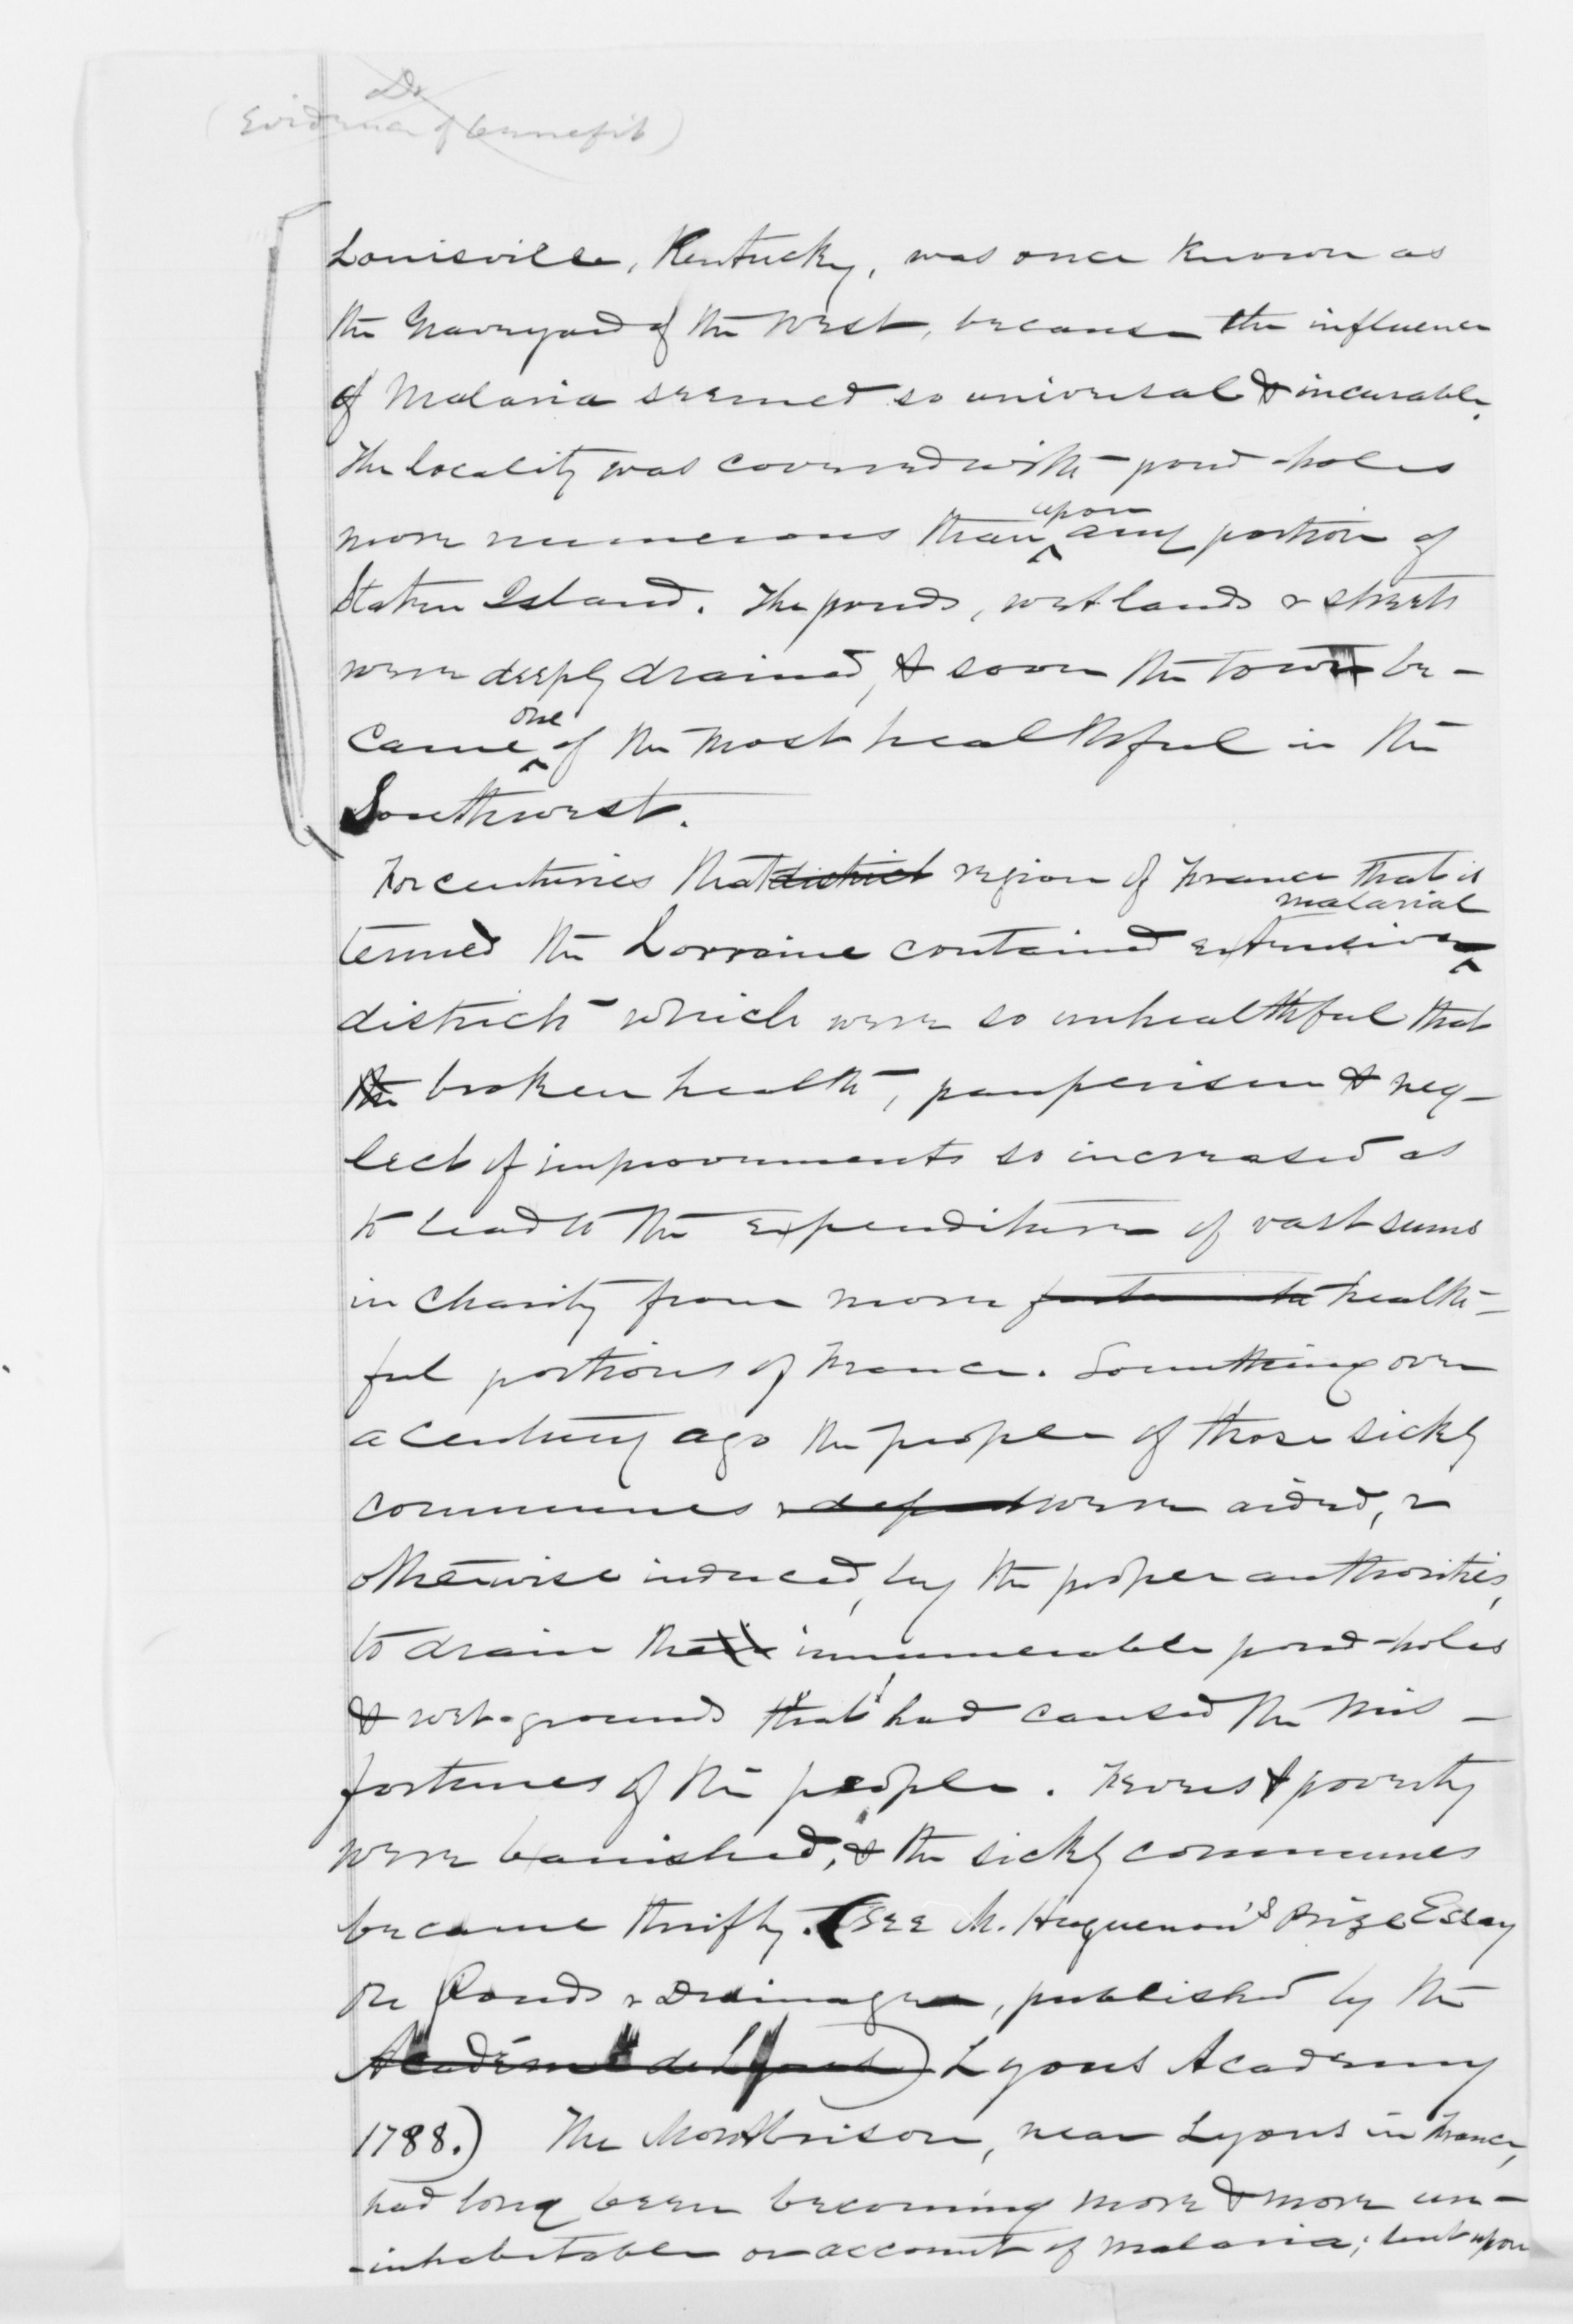 Dr
(Evidence of benefit)
Louisville, Kentucky, was once known as
the Graveyard of the West, because the influence
of Malaria seemed so universal & incurable.
The locality was covered with pond-holes
upon
more numerous than any portion of
Staten Island. The ponds, wet lands & streets
were deeply drained, & soon the town be-
one
came of the most healthful in the
Southwest.
For centuries that district region of France that is
malarial
termed the Lorraine contained extensive
districts which were so unhealthful that
the broken health, pauperism & neg-
lect of improvements so increased as
to lead to the expenditure of vast sums
in charity from more fortunate health-
ful portions of France. Something over
a century ago the people of those sickly
communes were aided, &
otherwise induced, by the proper authorities,
to drain their innumerable pond-holes
& wet-grounds that had caused the mis-
fortunes of the people. Fevers & poverty
were banished, & the sickly communes
became thrifty. (See M. Huguenon's Prize Essay
on Ponds & Drainage, published by the
Académie de Lyons) Lyons Academy
1788.) The Montbrison, near Lyons in France,
had long been becoming more & more un-
-inhabitable on account of malaria; but upon